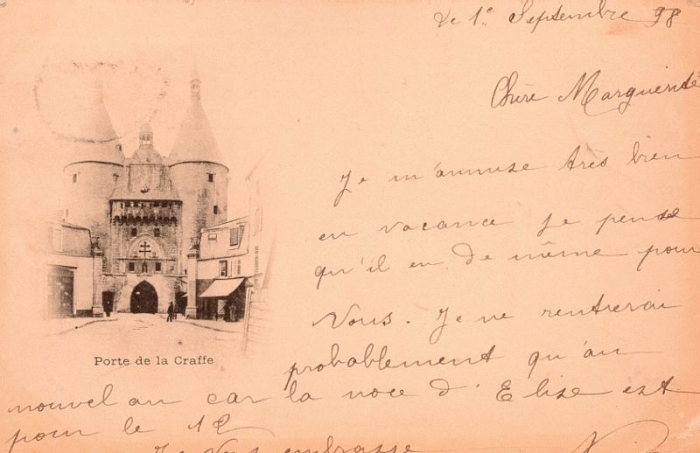 de 1e Septembre 98
Chère Marguerite
Je m'amuse très bien
en vacance je pense
qu'il en de même pour
Vous. Je ne rentrerai
probablement qu'au
nouvel an car la noce d'Elise est
pour le 12
Je vous embrasse
Porte de la Craffe